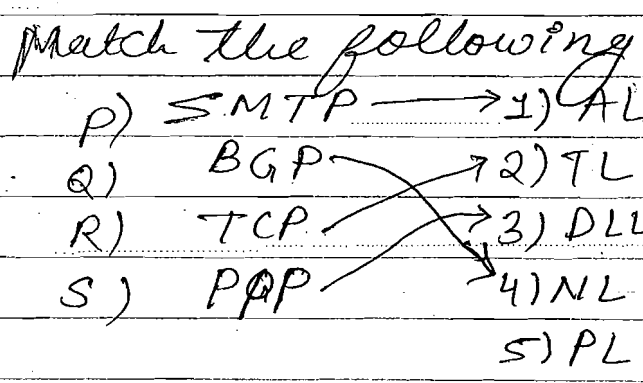 Match the following
P) SMTP → 1) AL
Q) BGP 2) TL
R) TCP 3) DLL
S) PPP 4) NL
5) PL